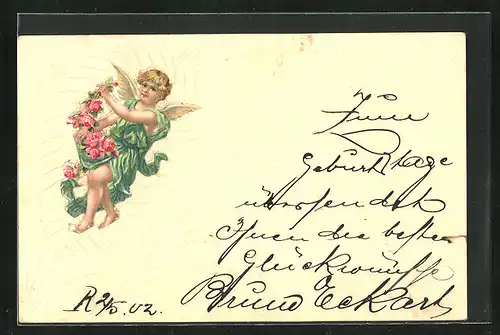 Zum
Geburtstage
übersendet
Ihnen die besten
Glückwünsche
Bruno Eckart
R 2/5. 02.